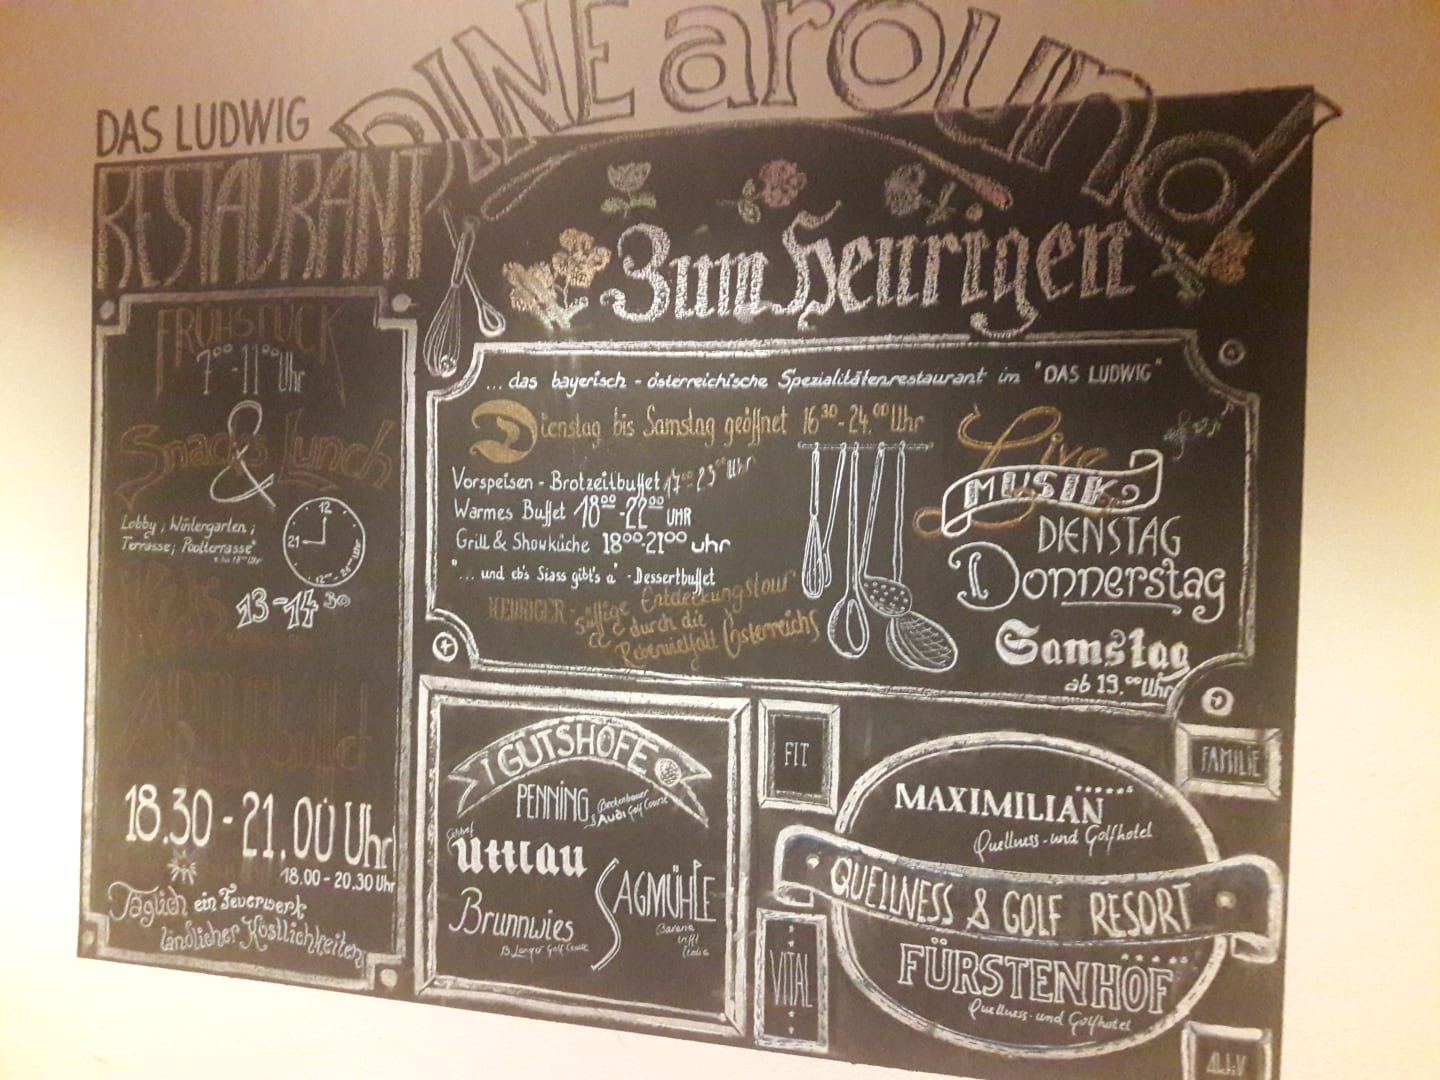 DINE around
DAS LUDWIG
RESTAURANT
FRÜHSTÜCK
7⁰⁰-11⁰⁰ Uhr
&
Snacks Lunch
Lobby, Wintergarten,
Terrasse, Poolterrasse*
12
21
12⁰⁰-21⁰⁰ Uhr
13-14³⁰
18.30-21.00 Uhr
18.00-20.30 Uhr
Täglich ein Feuerwerk
ländlicher Köstlichkeiten
Zum Heurigen
... das bayerisch-österreichische Spezialitätenrestaurant im "DAS LUDWIG"
Dienstag bis Samstag geöffnet 16³⁰-24.⁰⁰ Uhr
Vorspeisen-Brotzeitbuffet 17⁰⁰ 23⁰⁰ Uhr
Warmes Buffet 18⁰⁰-22⁰⁰ UHR
Grill & Showküche 18⁰⁰-21⁰⁰ uhr
"... und eb's Siass gibt's a" -Dessertbuffet
HEURIGER - süffige Entdeckungstour
durch die
Rebenvielfalt Österreichs
Live
MUSIK
DIENSTAG
Donnerstag
Samstag
ab 19.⁰⁰ Uhr
GUTSHÖFE
PENNING Beckenbauer
& Audi Golf Course
Gutshof
uttlau
Brunnwies
B. Langer Golf Course
SAGMÜHLE
Bavaria
trifft
Italia
FIT
FAMILIE
VITAL
MAXIMILIAN
Quellness- und Golfhotel
QUELLNESS & GOLF RESORT
FÜRSTENHOF
Quellness- und Golfhotel
AktiV